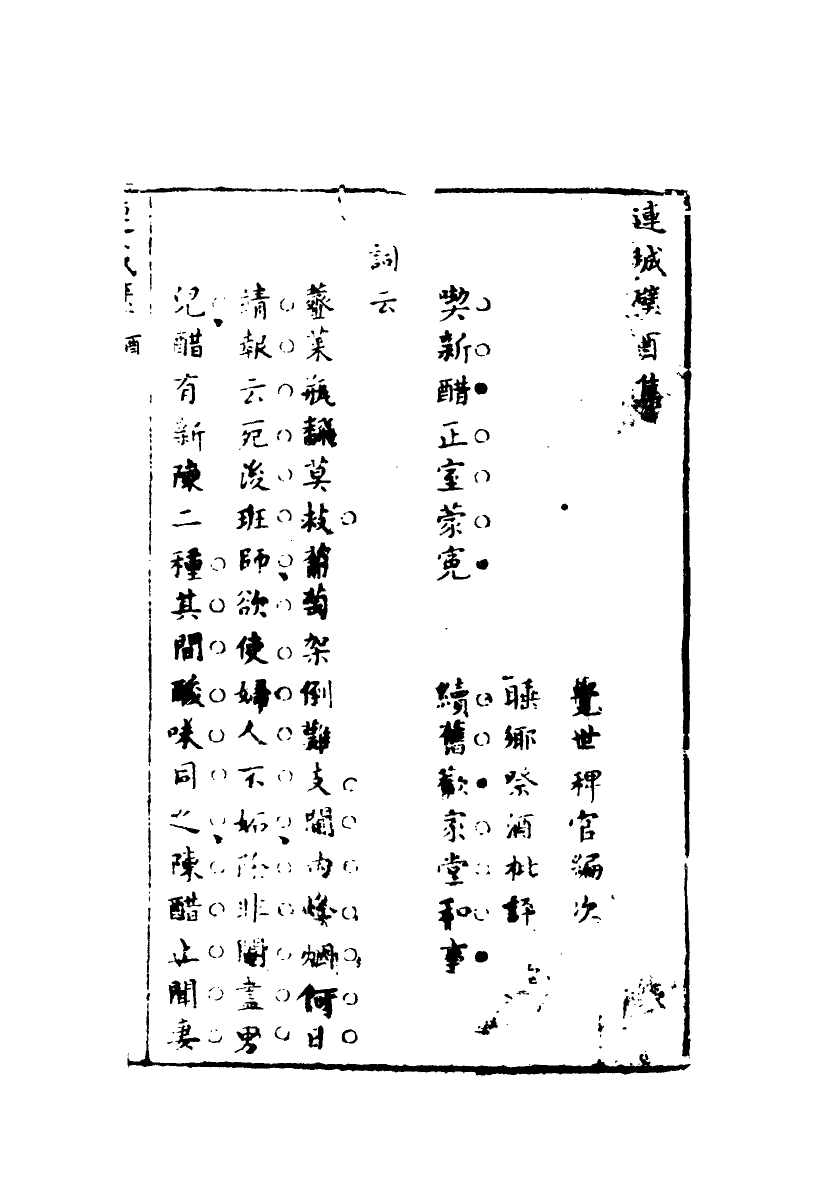 連城璧酉集
覺世稗官編次
睡鄉祭酒批評
喫新醋正室蒙寃　續舊歡家堂和事
詞云
虀菜瓶翻莫救葡萄架倒難支閫内烽烟何日
靖報云死後班師欲使婦人不妬除非閹盡男
兒醋有新陳二種其間酸味同之陳醋止聞妻
酉